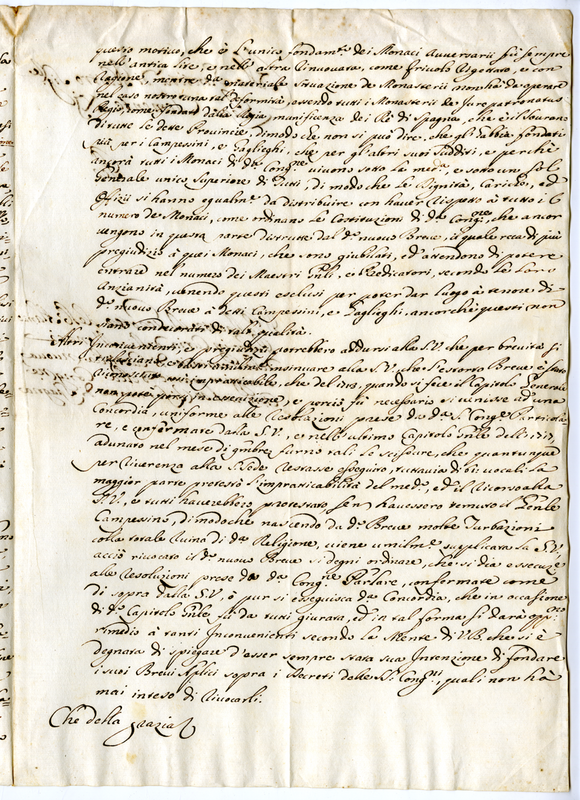 questo motivo, che è l'unico fondam.to dei Monaci Avversarii fù sempre
nell'antica lite, e nell'altra rinuovata, come frivolo rigettato, e con
ragione, mentre da materiale situazione de Monasterii non hà da operare
nel caso nostro una tal deformità, essendo tutti i Monasterii de Jure patronatus
Regio, come fondati dalla Regia munificenza dei Rè di Spagna, che è il Sovrano
di tutte le dette Provincie, dimodo che non si può dire, che gl'abbia fondati
più per i Campessini, e Gaglieghi, che per gl'altri suoi sudditi, e perche
ancora tutti i Monaci di d.a Cong.ne vivono sotto le med.e, e sotto un solo
Generale unico Superiore di tutti, di modo che le Dignità, Cariche, ed
Offizii si hanno egualm.te da distribuire con haver rispetto à tutto il
numero de Monaci, come ordinano le Costituzioni di d.a Cong.ne, che ancor
vengono in questa parte distrutte dal d.o nuovo Breve, il quale reca di più
pregiudizio à quei Monaci, che sono giubilati, ed attendono di potere
entrare nel numero dei Maestri Gnli, e Predicatori, secondo la loro
Anzianità, venendo questi esclusi per poter dar luogo à tenore di
d.o nuovo Breve à detti Campessini, e Gaglieghi, ancorche questi non
siano condecorati di tale qualità.
Altri Inconvenienti, e pregiudizii potrebbero addursi alla S.V. che per brevità si
tralasciano, e bastarà insinuare alla S.V., che l'estorto Breve è stato
riconosciuto così impratticabile, che del 1713, quando si fece il Capitolo Generale
non potè porsi in esecuzione, e perciò fù necessario si venisse ad una
Concordia, uniforme alle resoluzioni prese da d.a S. Cong.ne Particola
re, e confermate dalla S.V., e nell'ultimo Capitolo Gnle dell'1717
adunato nel mese di gmbre furno tali le scissure, che quantunque
per riverenza alla S. Sede restasse eseguito, tuttavia di 61 vocali la
maggior parte protestò l'impratticabilità del med.o, ed il ricorso alla
S.V., e tutti havrebbero protestato se non havessero temuto il Gnle
Campessino, dimodoche nascendo da d.o Breve molte turbazioni
colla totale ruina di d.a Religione, viene umilm.te supplicata la S.V.
acciò rivocato il d.o nuovo Breve si degni ordinare, che si dia esecuz.e
alle resoluzioni prese da d.a Cong.ne Parlare, confermate come
di sopra dalla S.V., ò pur si eseguisca da Concordia, che in occasione
di d.o Capitolo Gnle fù da tutti giurata, ed in tal forma si darà opp.no
rimedio à tanti Inconvenienti secondo la Mente di V.B. che si è
degnata di spiegare d'esser sempre stata sua Intenzione di fondare
i suoi Brevi Aplici sopra i Decreti delle SS. Cong.ni, quali non hà
mai inteso di rivocarli.
Che della grazia